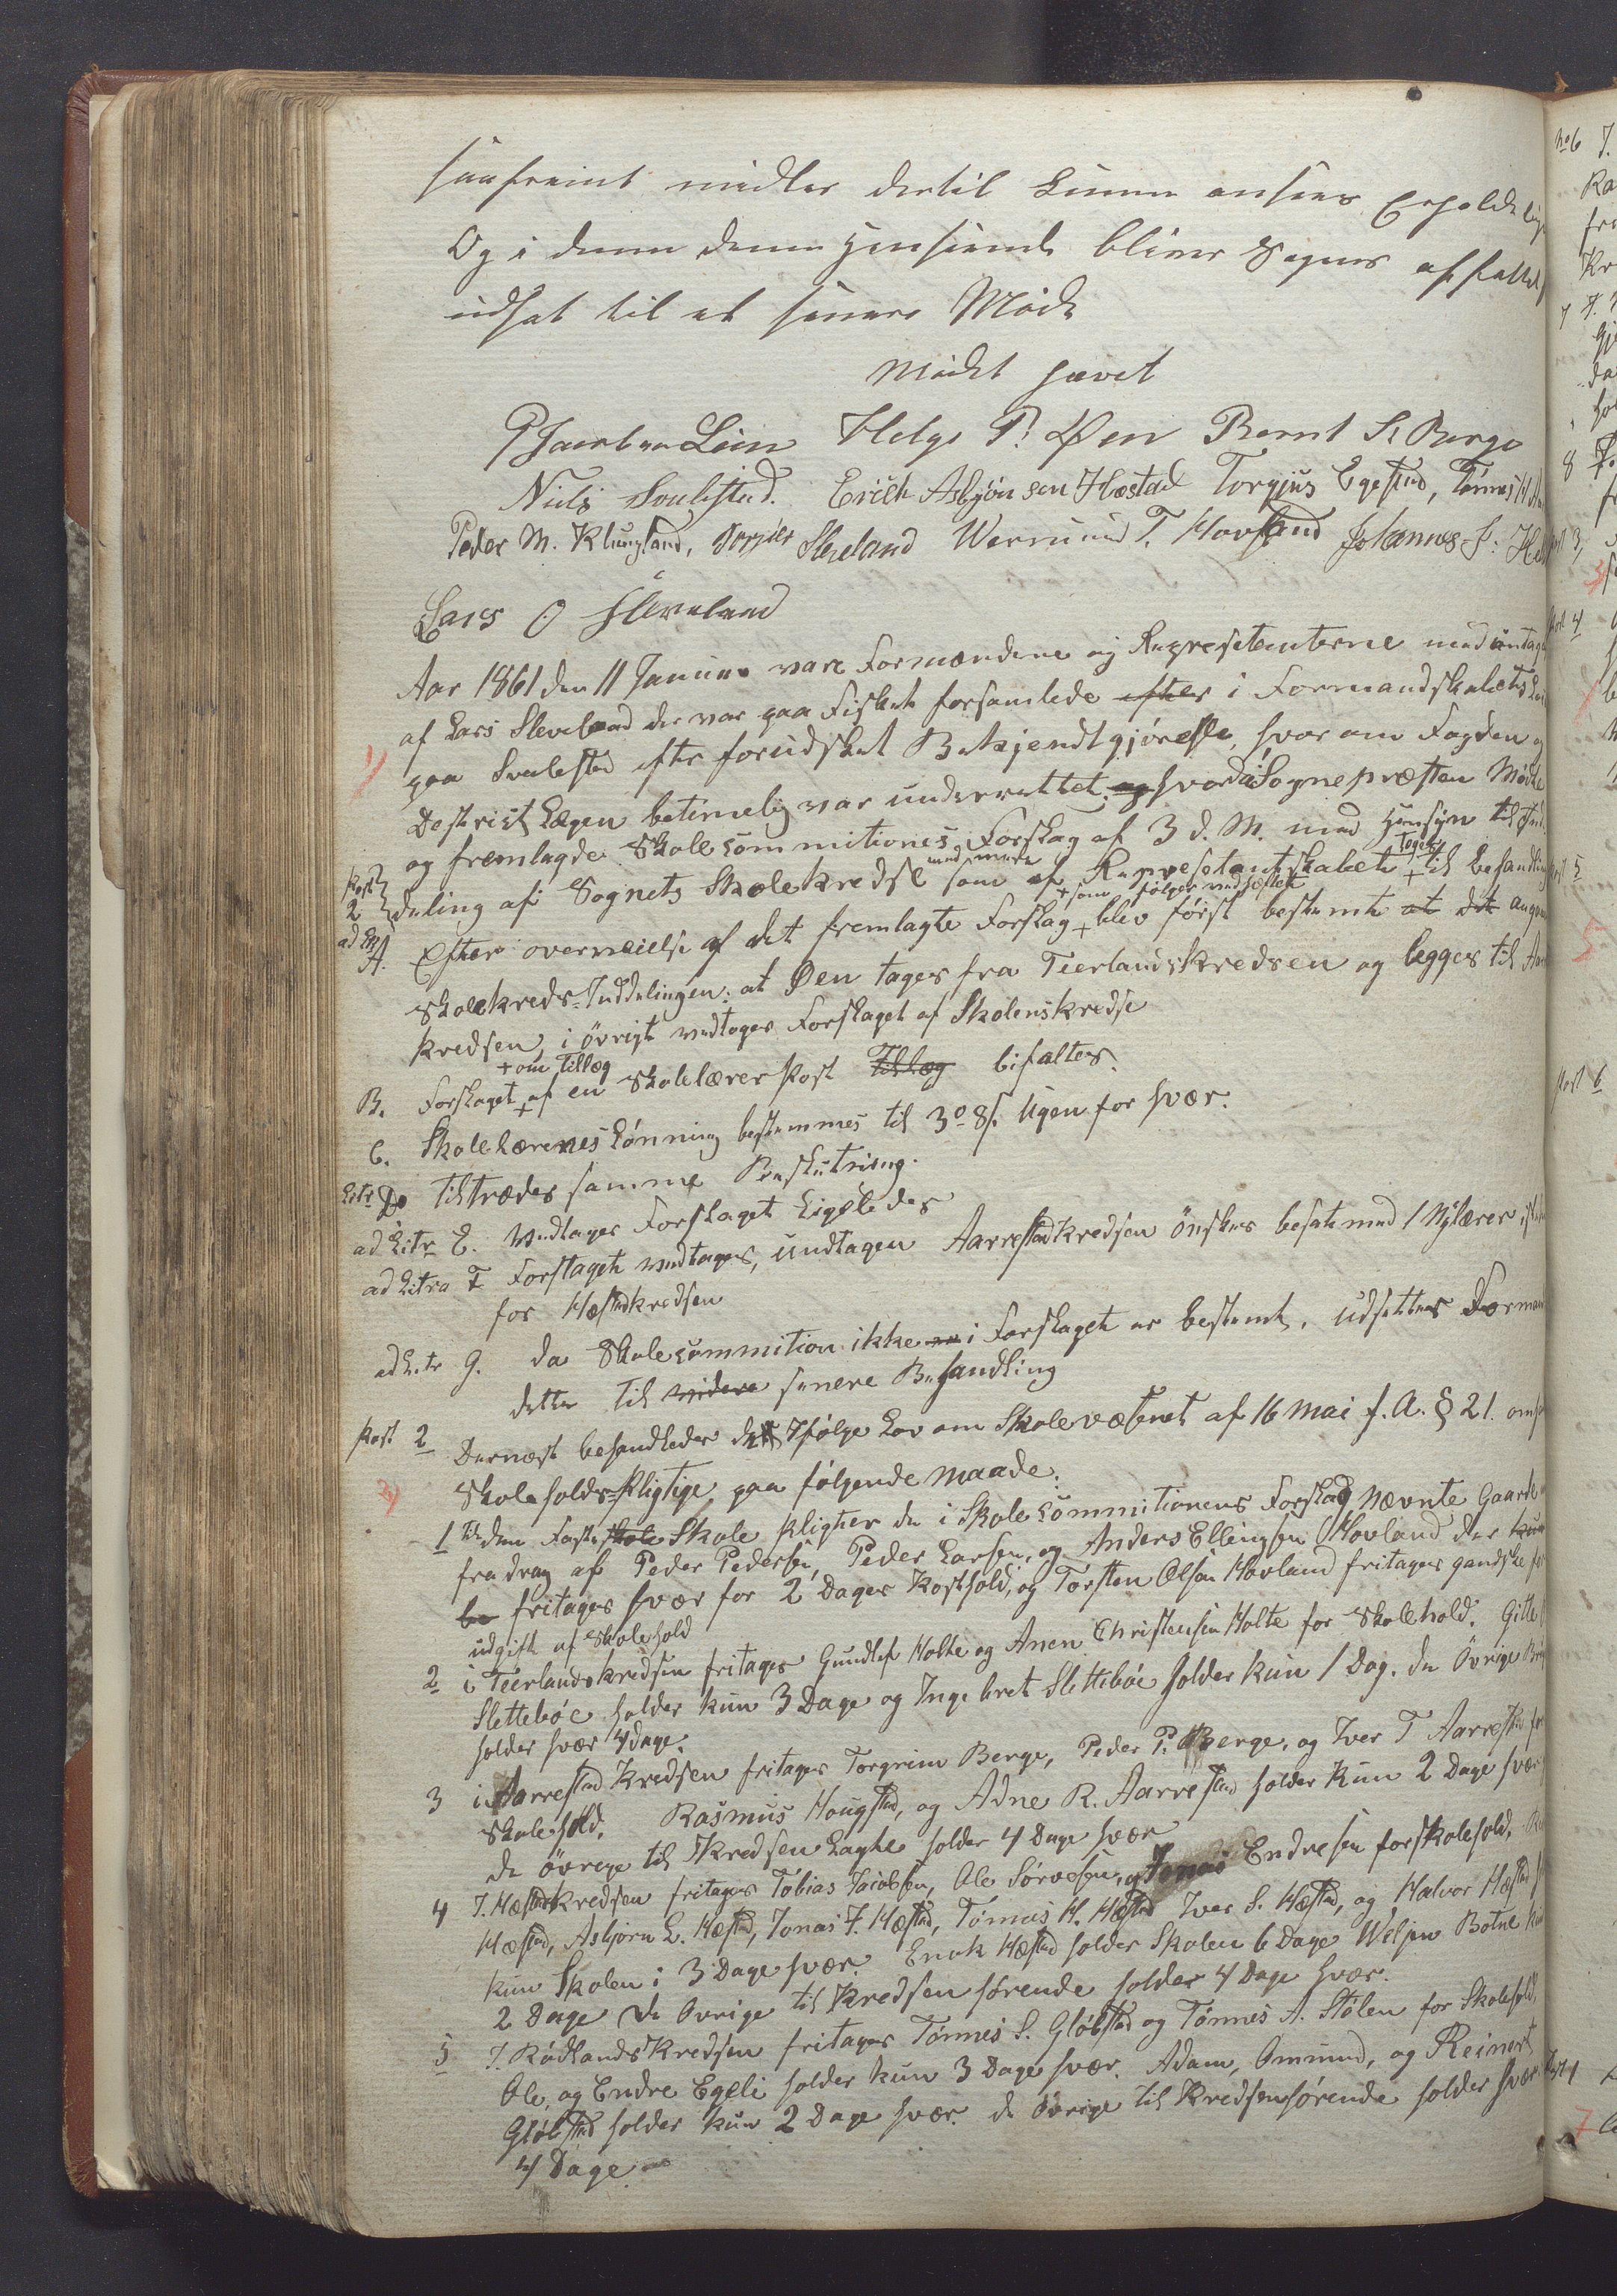 saafremt midler dertil kunne ansees Erholdelige
Og i denne denne Henseende bliver Sagens affattelse
udsat til et senere Møde
Mødet hævet
Helge P. Øen Bernt S. Berge
Niels Svalestad. Erich Asbjönsen Hæstad Torgius Egelund, Tönnes
Peder M. Klungland, Torjer Sleveland Wermund T. Hovland Johannes J:
Lars O Sleveland
Aar 1861 den 11 Januar vare Formændene og Represetanterne med undtagelse
af Lars Sleveland der var paa Fisket forsamlede efter i Formandskabets
1/ paa Svalestad efter forudskat Bekjendtgjörelse, hvor om Fogden og
Destrict Lægen betimelig var underrettet. og hvorda Sognepræsten Mödte
og fremlagde Skolecommitiones Forslag af 3 d. M. med Hensyn til Ind-
Post 2 deling af Sognets Skolekredse som af Represetantskabet + toges til behandling
+ som fölger vedheftet
ad Litr A. Efter overveielse af det fremlagte Forslag + blev först bestemte at det angaaende
Skolekreds-Inddelingen: at Öen tages fra Teerlandskredsen og legges til
Kredsen, i övrigt vedtages Forslaget af Skolenskredse
+ om Tillæg
B. Forslaget + af en Skolelærer Post Tillæg bifaltes.
C. Skolelærenes Lönning bestemmes til 30 Sk. Ugen for hver.
Litr D tiltrædes samme Beslutning.
ad Litr E. Vedtages Forslaget Ligeledes
ad Litra F Forslaget vedtages, undtagen Aarrestadkredsen önskes besat med 1
for Hæstadkredsen
ad Litr G. da Skolecommition ikke i Forslaget er bestemt, udsættes
dette til videre senere Behandling
Post 2 Dernæst behandledes det Ifölge Lov om Skolevæsenet af 16 Mai f. A. § 21.
Skoleholds-Pligtige paa fölgende Maade:
1 Til den Faste Skole Skole Pligter de i Skolecommitionens Forslag nævnte Gaarde
fradrag af Peder Pedersen, Peder Larsen, og Anders Ellingsen Hovland der
be fritages hver for 2 Dages Kosthold, og Torsten Olsen Hovland fritages gandske for
udgift af Skolehold
2 i Teerlandskredsen fritages Gundlef Holte og Anen Christensen Holte for Skolehold. Gitle
Sletteböe holder kun 3 Dage og Ingebret Sletteböe holder kun 1 Dag. de Övrige
holder hver 4 Dage.
3 i Aarrestad Kredsen fritages Torgrim Berge, Peder P. Berge, og Iver T Aarrestad for
Skolehold. Rasmus Hougstad, og Adne R. Aarrestad holder kun 2 Dage hver
de övrige til Kredsen Lagte holder 4 Dage hver
4 I. Hæstadkredsen fritages Tobias Jacobsen, Ole Sörensen, og Jonas Endresen for Skolehold.
Hæstad, Asbjorn E. Hæstad, Jonas J. Hæstad, Tönnes H. Hæstad Iver S. Hæstad, og Halvor Hæstad
kun Skolen i 3 Dage hver. Enok Hæstad holder Skolen 6 Dage Botne
2 Dage de Övrige til Kredsen hörende holder 4 Dage hver.
5 I. Rödlandskredsen fritages Tönnes S. Glöbstad og Tönnes A. Stölen for Skolehold,
Ole, og Endre Egeli holder kun 3 Dage hver. Adam, Omund, og Reinert
Glöbstad holder kun 2 Dage hver. de övrige til Kredsen hörende holder hver
4 Dage